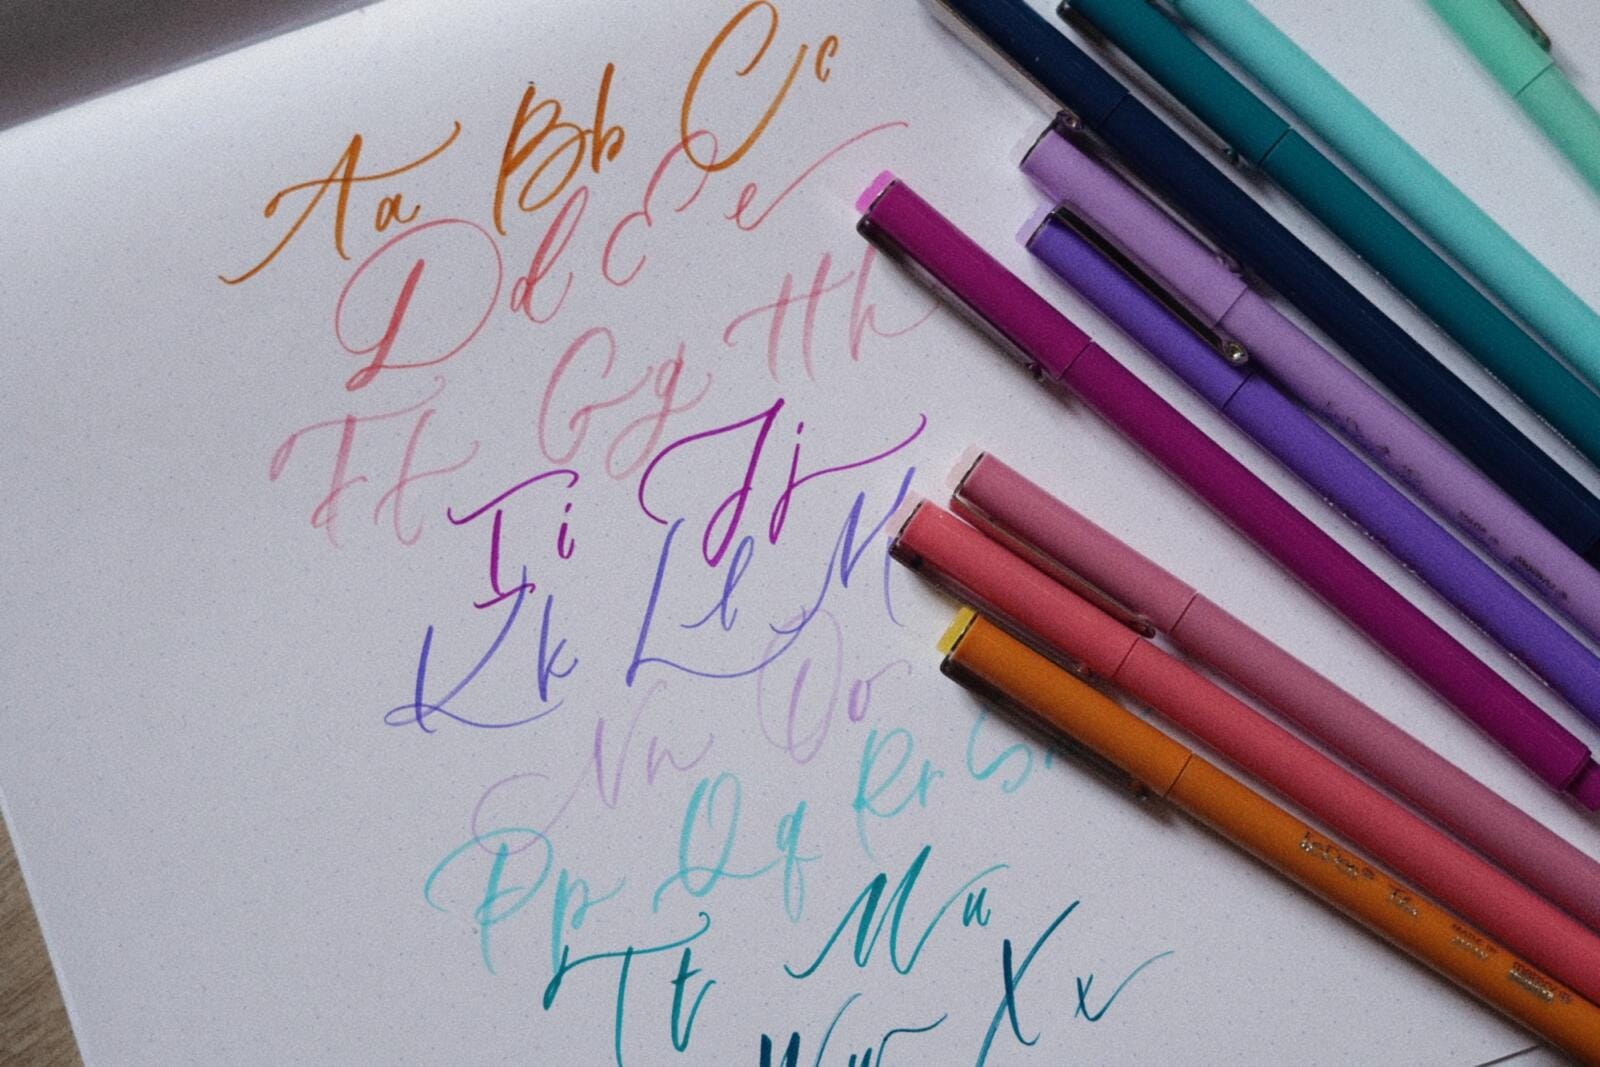 Aa Bb Cc
Dd Ee
Ff Gg Hh
Ii Jj
Kk Ll M
Nn Oo
Pp Qq Rr S
Tt Uu
Ww Xx